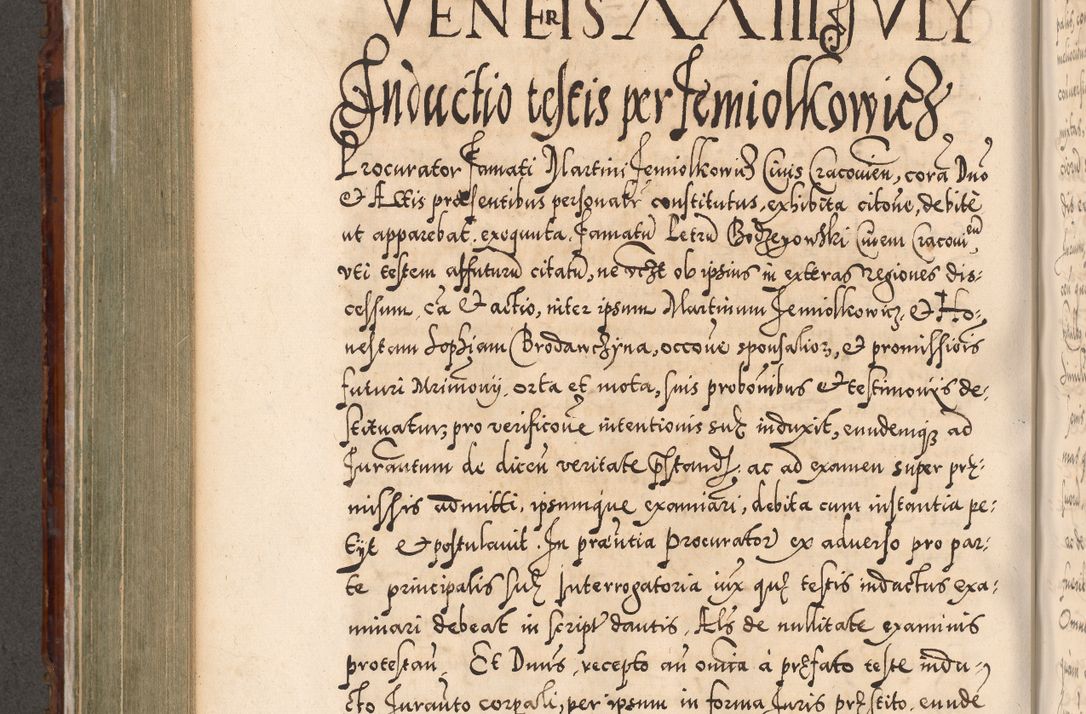 VENERIS XXIII JULY
Inductio testis per Jemiolkowicz
Procurator Famati Martini Jemiolkowicz Civis Cracovien, corã Dno
et Actis præsentibus personalr constitutus, exhibita citone, debite
ut apparebat, exequuta, Famatũ Petrũ Bodzenowski Civem Cracovien,
uti testem affuturũ citatũ, ne ob ipsius in exteras regiones dis:
cessum, cã et actio, inter ipsum Martinum Jemiolkowicz, et Ho:
nestam Sophiam Brodawczyna, occone sponsalior, et promissiois
futuri Mrimonij, orta et mota, suis probonibus et testimonijs de:
stituatur, pro verificone intentionis suę induxit, eundemq ad
Jurantum de dicen veritate pstandę, ac ad examen super prę:
missis admitti, ipsumque examiari, debita cum instantia pe:
tijt et postulavit. In præntia Procurator ex adverso pro par:
te principalis suę Interrogatoria iux quę testis inductus exa:
minari debeat in script dantis, Als de nullitate examinis
protestan. Et Dnus, recepto an omia à pręfato teste indu:
cto Juranto corpali, per ipsum in forma Juris pręstito, eunde